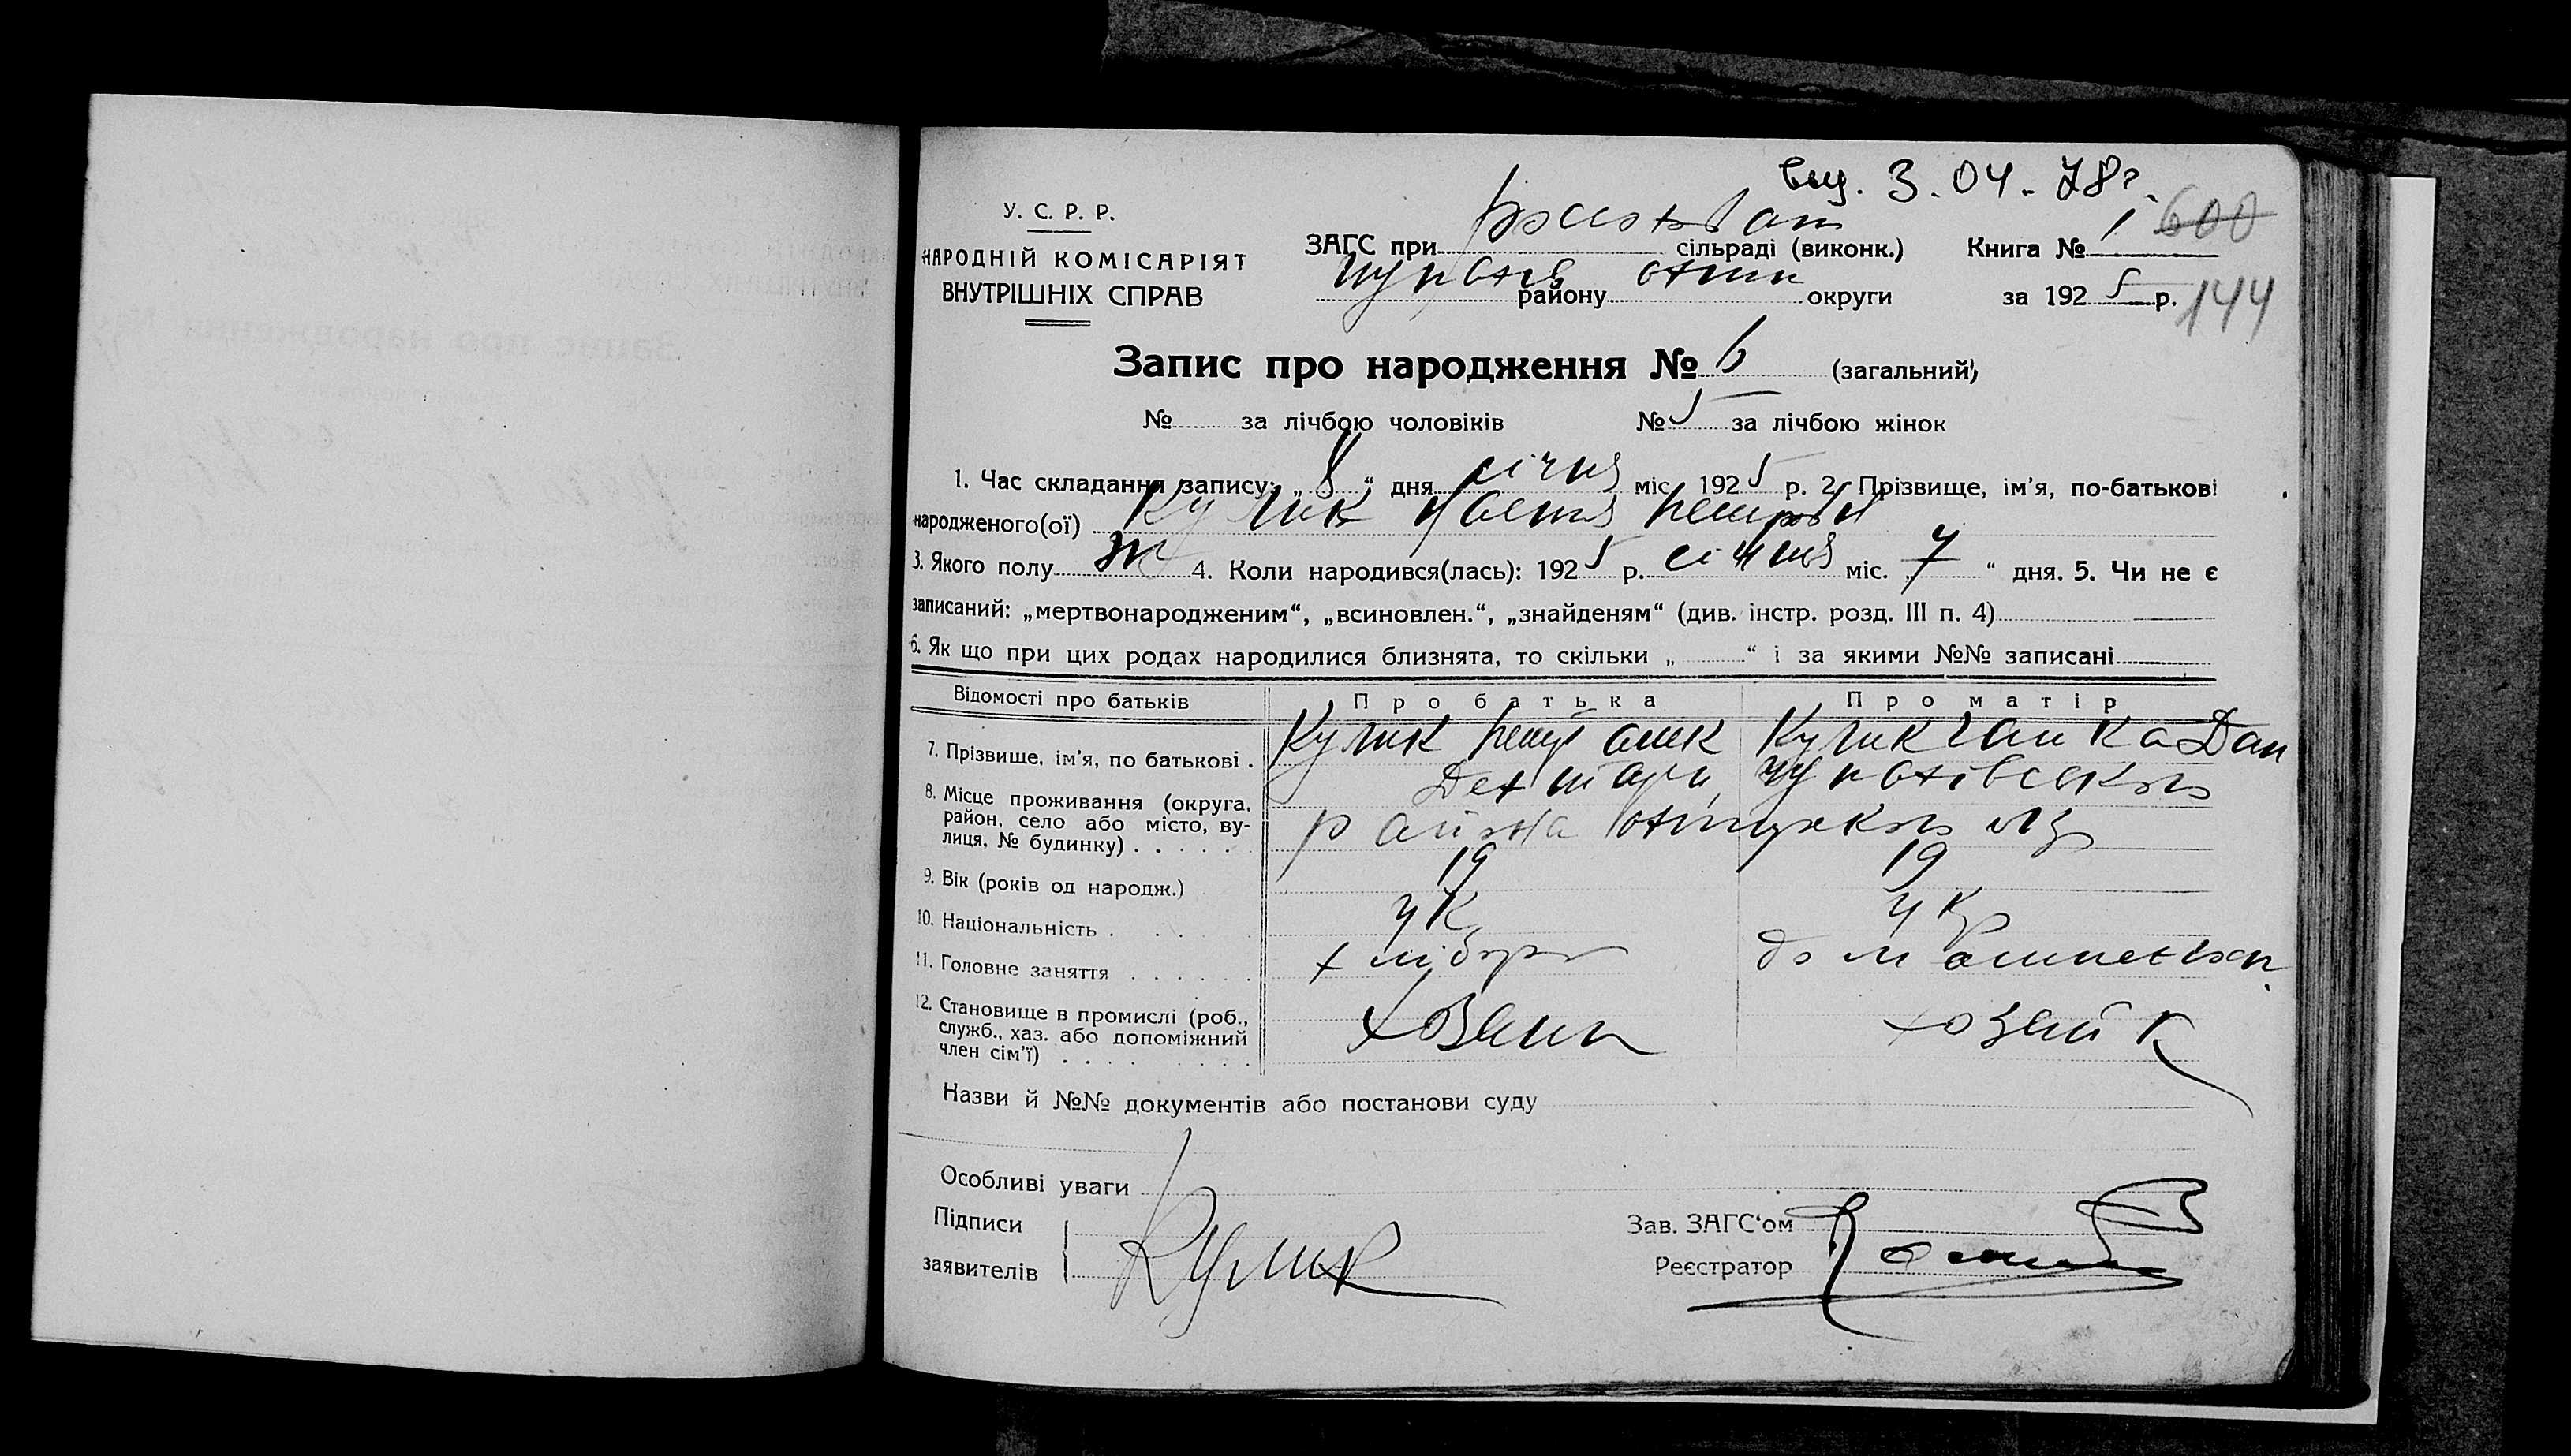 3.04.78г.
У. С. Р. Р.
НАРОДНІЙ КОМІСАРІЯТ
ВНУТРІШНІХ СПРАВ
ЗАГС при сільраді (виконк.) Книга № 1 600
району округи за 1925 р. 144
Запис про народження № 6 (загальний)
№ за лічбою чоловіків № 5 за лічбою жінок
1. Час складання запису: „8“ дня січня міс. 1925 р. 2. Прізвище, ім'я, по-батькові
народженого(ої) Кулик
3. Якого полу ж 4. Коли народився(лась): 1925 р. січня міс. „7“ дня. 5. Чи не є
записаний: „мертвонародженим“, „всиновлен.“, „знайденям“ (див. інстр. розд. III п. 4)
6. Як що при цих родах народилися близнята, то скільки „ “ і за якими №№ записані
Відомості про батьків Про батька Про матір
7. Прізвище, ім'я, по батькові . Кулик Кулик Ганка Дан
8. Місце проживання (округа, район, село або місто, вулиця, № будинку) . . . . . . Дехтяри
района
9. Вік (років од народж.) 19 19
10. Національність . . . Ук Укр
11. Головне заняття . . . . . . хлібор дом
12. Становище в промислі (роб., служб., хаз. або допоміжний член сім'ї) . . . . . . хозяин хозяйк
Назви й №№ документів або постанови суду
Особливі уваги
Підписи
заявителів Кулик
Зав. ЗАГС'ом
Реєстратор